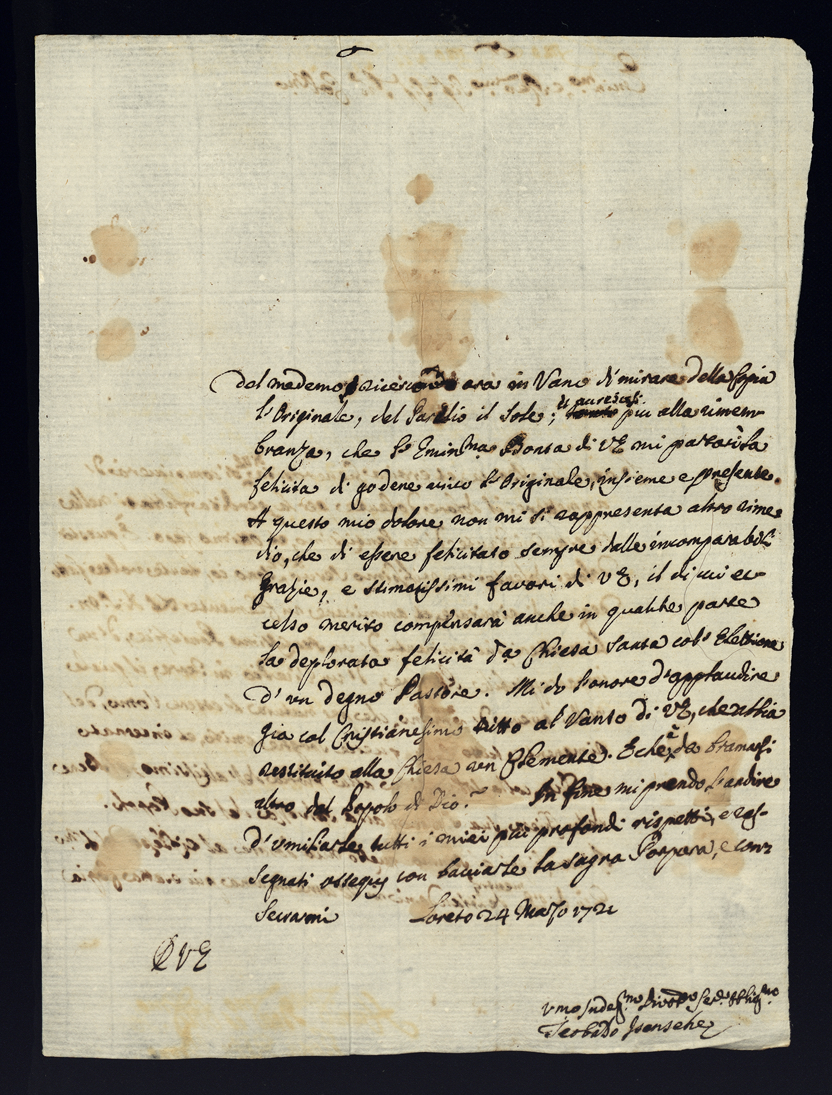 del mademo, ricerco ora in Vano di mirare della Coppia
l'Originale, del Parelio il Sole;
più alla rimem-
branza, che l'Eminma Bontà di VE mi partorì la
felicità di godere unico l'Originale, insieme e presente.
A questo mio dolore non mi si rappresenta altro rime
dio, che di essere felicitato sempre dalle incomparabili
Grazie, e stimatissimi favori di VE, il di cui ec-
celso merito compensarà anche in qualche parte
la deplorata felicità da Chiesa Santa col' Elettione
d'un degno Pastore. Mi do l'onore d'applaudire
gia col Cristianesimo tutto al Vanto di VE, che abbia
restituito alla Chiesa un Clemente. E che à da bramarsi
altro dal Popolo di Dio? In fine mi prendo l'ardire
d'umiliarle tutti i miei più profondi rispetti, e ras-
segnati ossequij con bacciarle la sagra Porpora, e con
secrarmi Loreto 24 Marzo 1721
DVE
Vmo Indegmo Divotmo Serre Obligmo